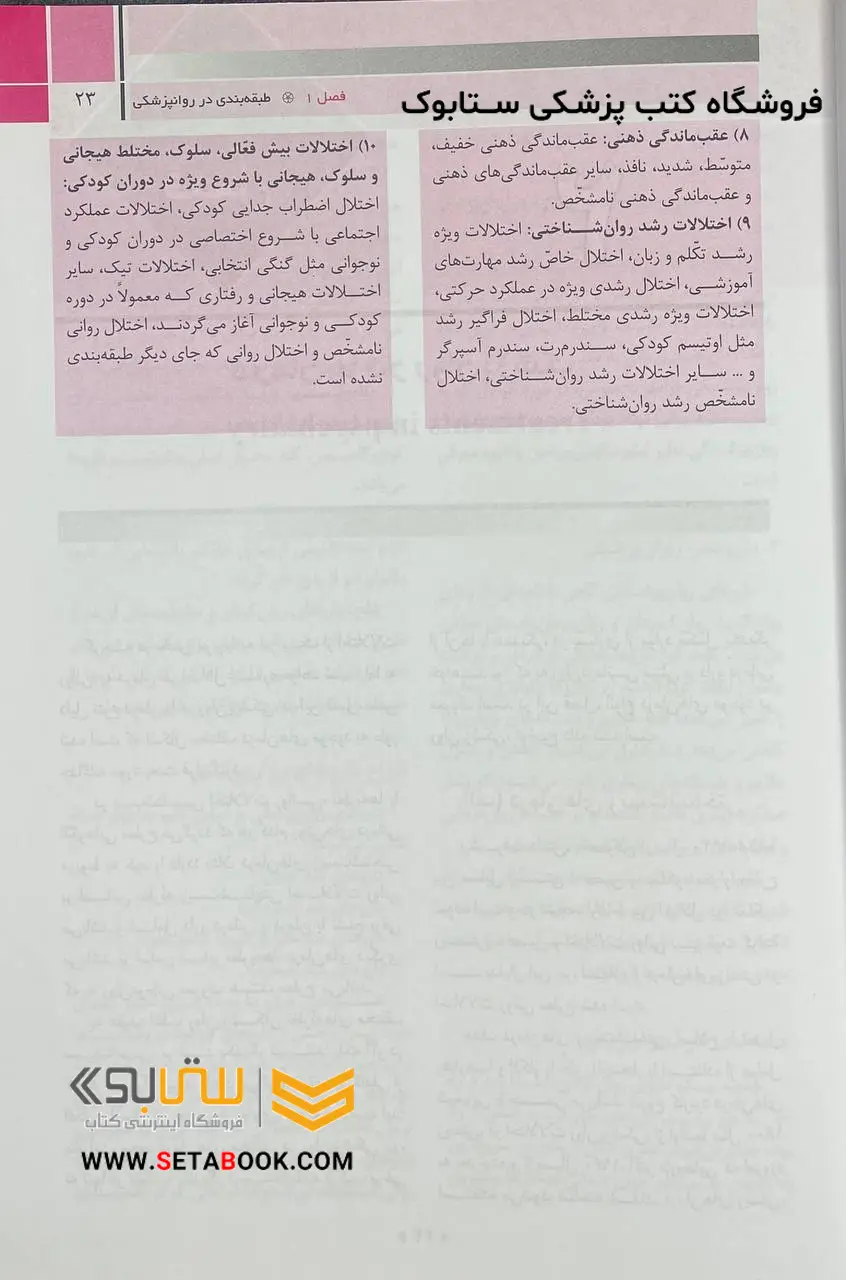 فصل ۱ ֍ طبقه‌بندی در روانپزشکی
۲۳
فروشگاه کتب پزشکی ستابوک
۸) عقب‌ماندگی ذهنی: عقب‌ماندگی ذهنی خفیف،
متوسّط، شدید، نافذ، سایر عقب‌ماندگی‌های ذهنی
و عقب‌ماندگی ذهنی نامشخّص.
۹) اختلالات رشد روان‌شناختی: اختلالات ویژه
رشد تکّلم و زبان، اختلال خاصّ رشد مهارت‌های
آموزشی، اختلال رشدی ویژه در عملکرد حرکتی،
اختلالات ویژه رشدی مختلط، اختلال فراگیر رشد
مثل اوتیسم کودکی، سندرم‌رت، سندرم آسپرگر
و ... سایر اختلالات رشد روان‌شناختی، اختلال
نامشخّص رشد روان‌شناختی.
۱۰) اختلالات بیش فعّالی، سلوک، مختلط هیجانی
و سلوک، هیجانی با شروع ویژه در دوران کودکی:
اختلال اضطراب جدایی کودکی، اختلالات عملکرد
اجتماعی با شروع اختصاصی در دوران کودکی و
نوجوانی مثل گنگی انتخابی، اختلالات تیک، سایر
اختلالات هیجانی و رفتاری که معمولاً در دوره
کودکی و نوجوانی آغاز می‌گردند، اختلال روانی
نامشخّص و اختلال روانی که جای دیگر طبقه‌بندی
نشده است.
ستابوک
فروشگاه اینترنتی کتاب
WWW.SETABOOK.COM